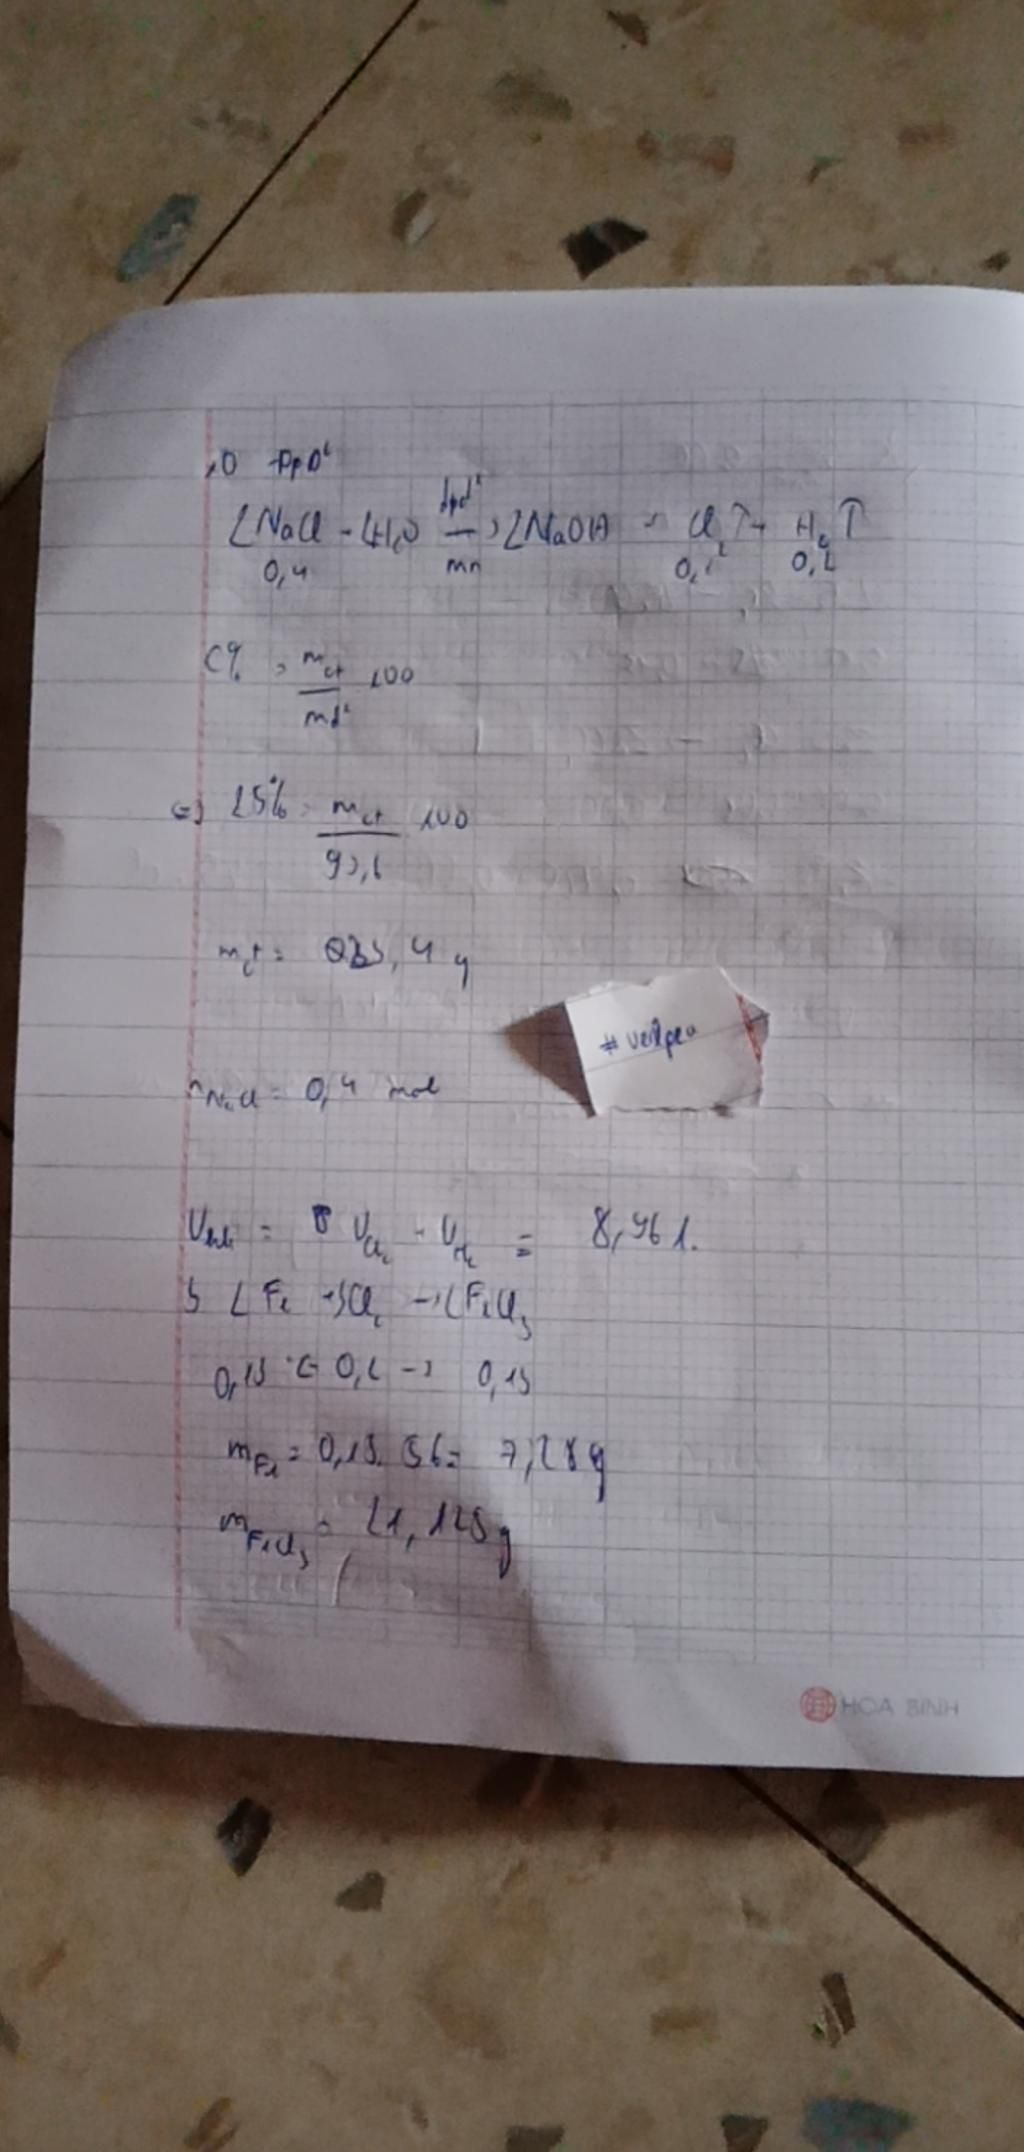 2NaCl + 2H₂O đpd² mn → 2NaOH + Cl₂↑ + H₂↑
0,4 0,2 0,2
C% = mct / md² 100
25% = mct / 93,6 100
mct = 23,4 g
#Verlpea
nNaCl = 0,4 mol
Vhh = VCl₂ + VH₂ = 8,96 l.
2Fe + 3Cl₂ → 2FeCl₃
0,13 ← 0,2 → 0,13
mFe = 0,13.56 = 7,28 g
mFeCl₃ = 21,125 g
HÒA BÌNH